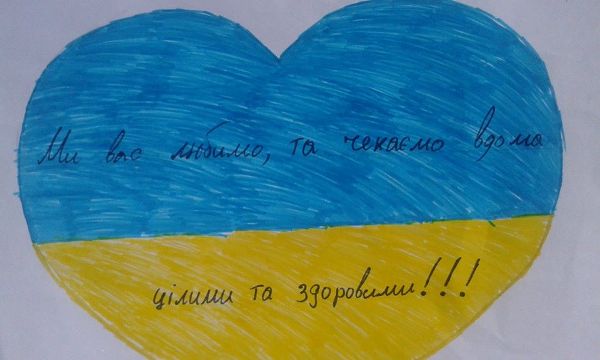 Ми вас любимо, та чекаємо вдома
цілими та здоровими!!!